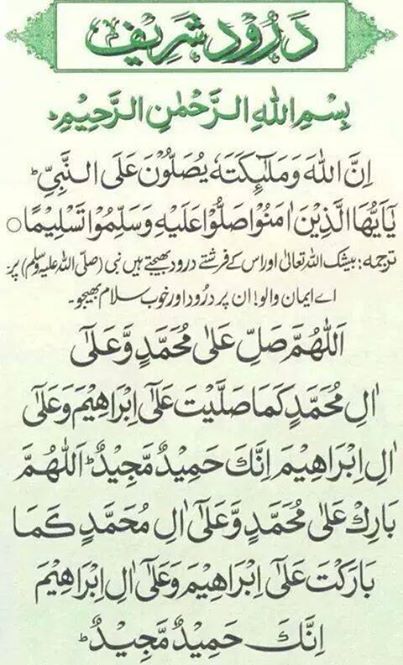 دَرُود شَرِیف
بِسْمِ اللهِ الرَّحْمٰنِ الرَّحِیْمِ ؕ
اِنَّ اللهَ وَمَلٰٓئِکَتَهٗ یُصَلُّوْنَ عَلَی النَّبِیِّ ؕ
یٰٓاَیُّهَا الَّذِیْنَ اٰمَنُوْا صَلُّوْا عَلَیْهِ وَسَلِّمُوْا تَسْلِیْمًا ○
ترجمہ: بیشک اللہ تعالیٰ اور اس کے فرشتے درود بھیجتے ہیں نبی (صلی اللہ علیہ وسلم) پر
اے ایمان والو! ان پر درُود اور خوب سلام بھیجو۔
اَللّٰهُمَّ صَلِّ عَلٰی مُحَمَّدٍ وَّعَلٰٓی
اٰلِ مُحَمَّدٍ کَمَا صَلَّیْتَ عَلٰٓی اِبْرَاهِیْمَ وَعَلٰٓی
اٰلِ اِبْرَاهِیْمَ اِنَّكَ حَمِیْدٌ مَّجِیْدٌ ؕ اَللّٰهُمَّ
بَارِكْ عَلٰی مُحَمَّدٍ وَّعَلٰٓی اٰلِ مُحَمَّدٍ کَمَا
بَارَکْتَ عَلٰٓی اِبْرَاهِیْمَ وَعَلٰٓی اٰلِ اِبْرَاهِیْمَ
اِنَّكَ حَمِیْدٌ مَّجِیْدٌ ؕ